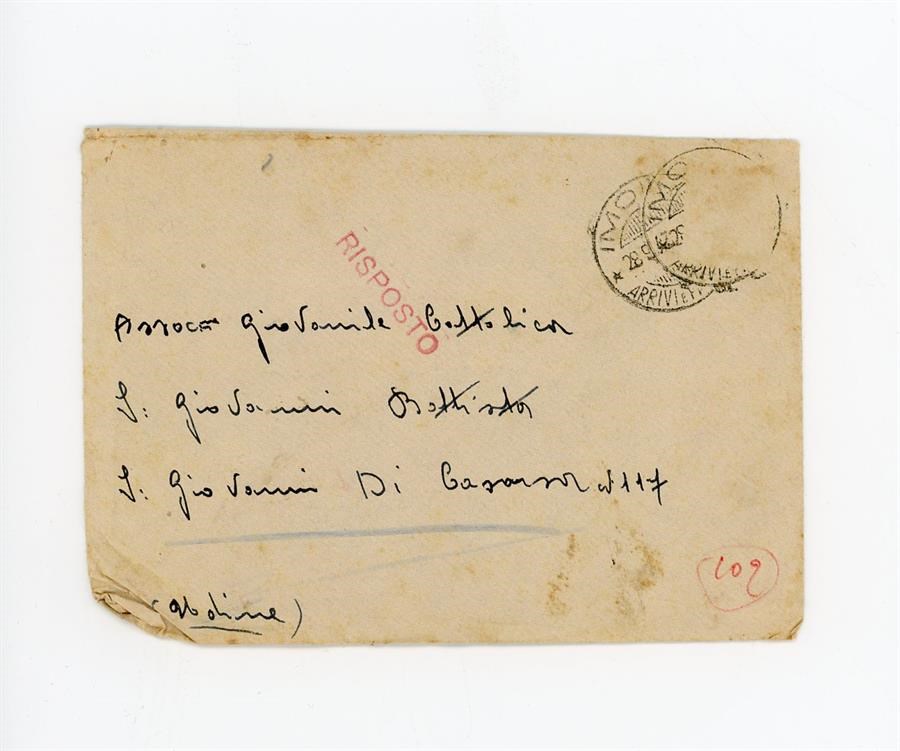 IMO
IMO
28.9
ARRIVI E P
ARRIVI E
RISPOSTO
Assoc= Giovanile Cattolica
S: Giovanni Battista
S: Giovanni Di Casarsa n 117
(Udine)
109